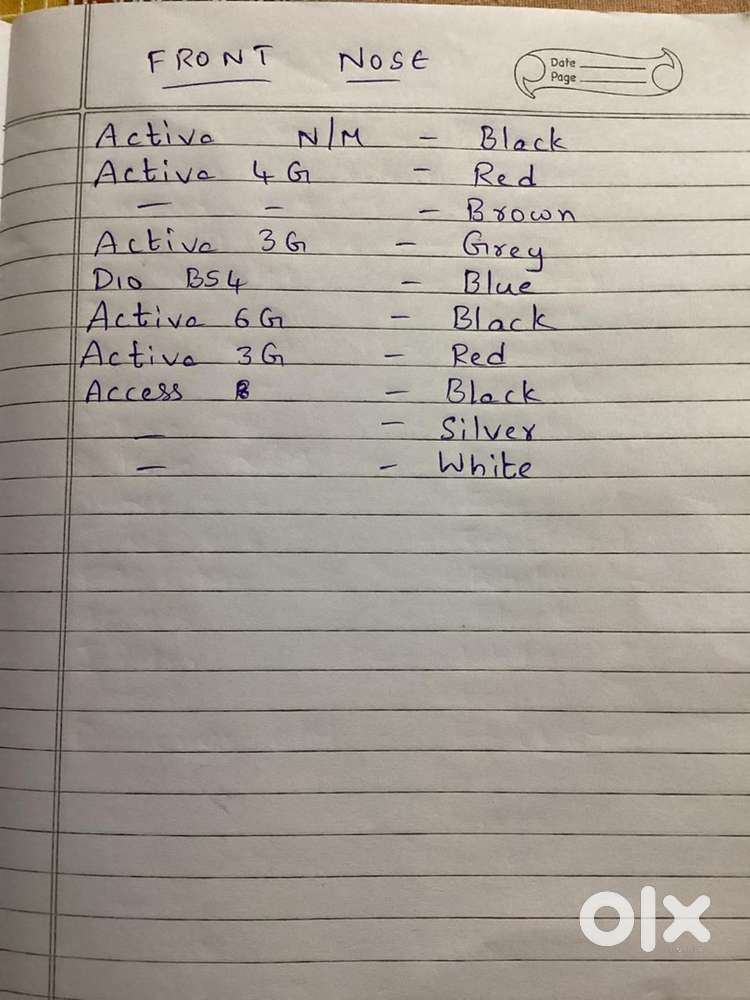 FRONT NOSE
Date
Page
Activa N/M - Black
Activa 4G - Red
— - - Brown
Activa 3G - Grey
Dio BS4 - Blue
Activa 6G - Black
Activa 3G - Red
Access - Black
— - Silver
— - White
olx